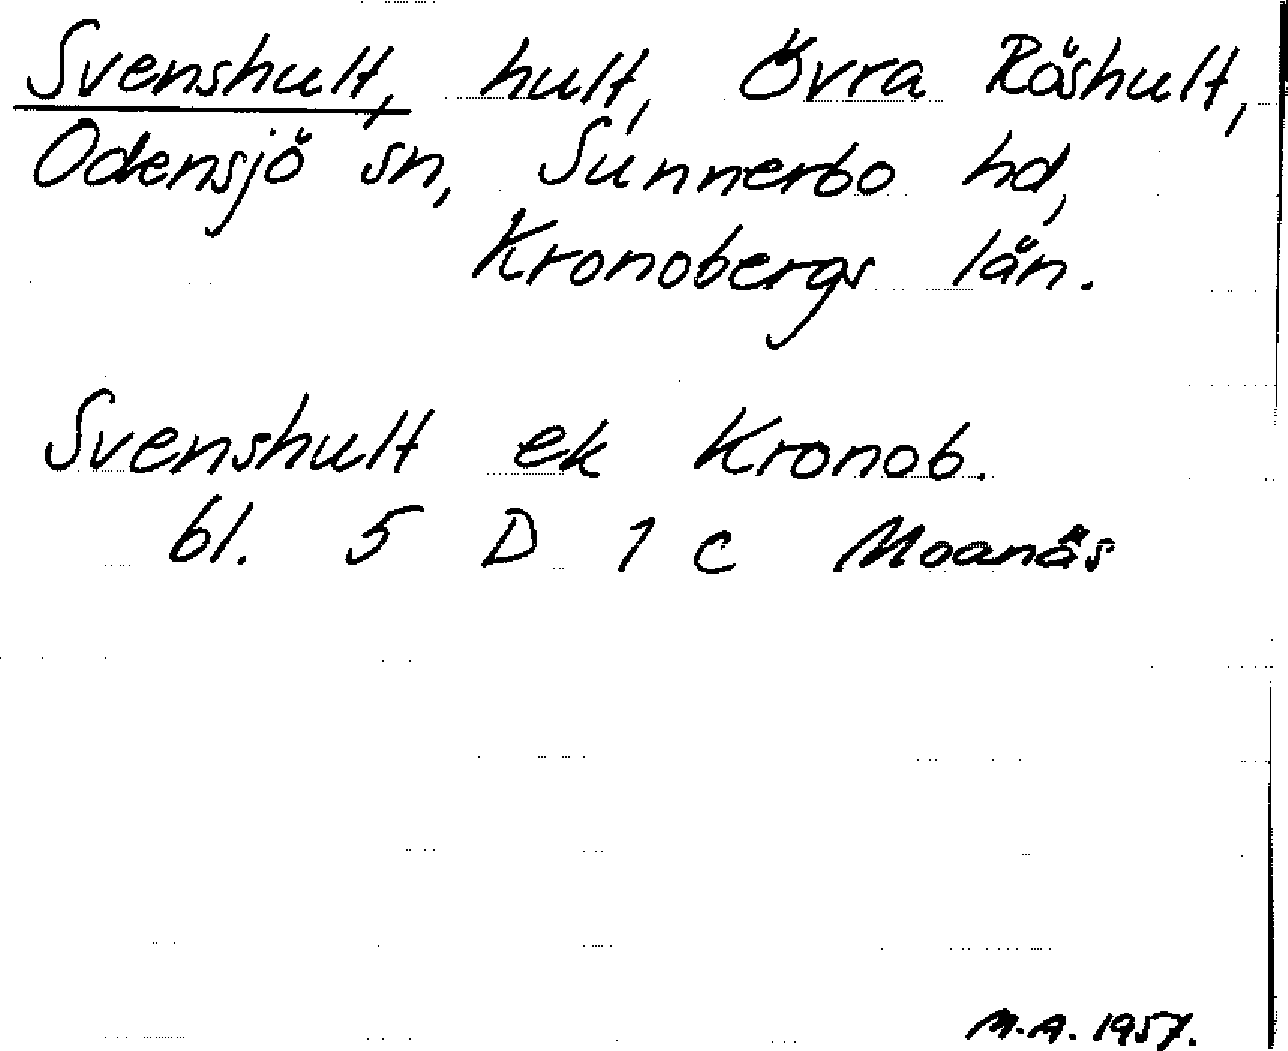 Svenshult, hult, Övra Råshult,
Odensjö sn, Sunnerbo hd,
Kronobergs län.
Svenshult ek Kronob.
bl. 5 D 1 c Moanäs
M.A. 1957.